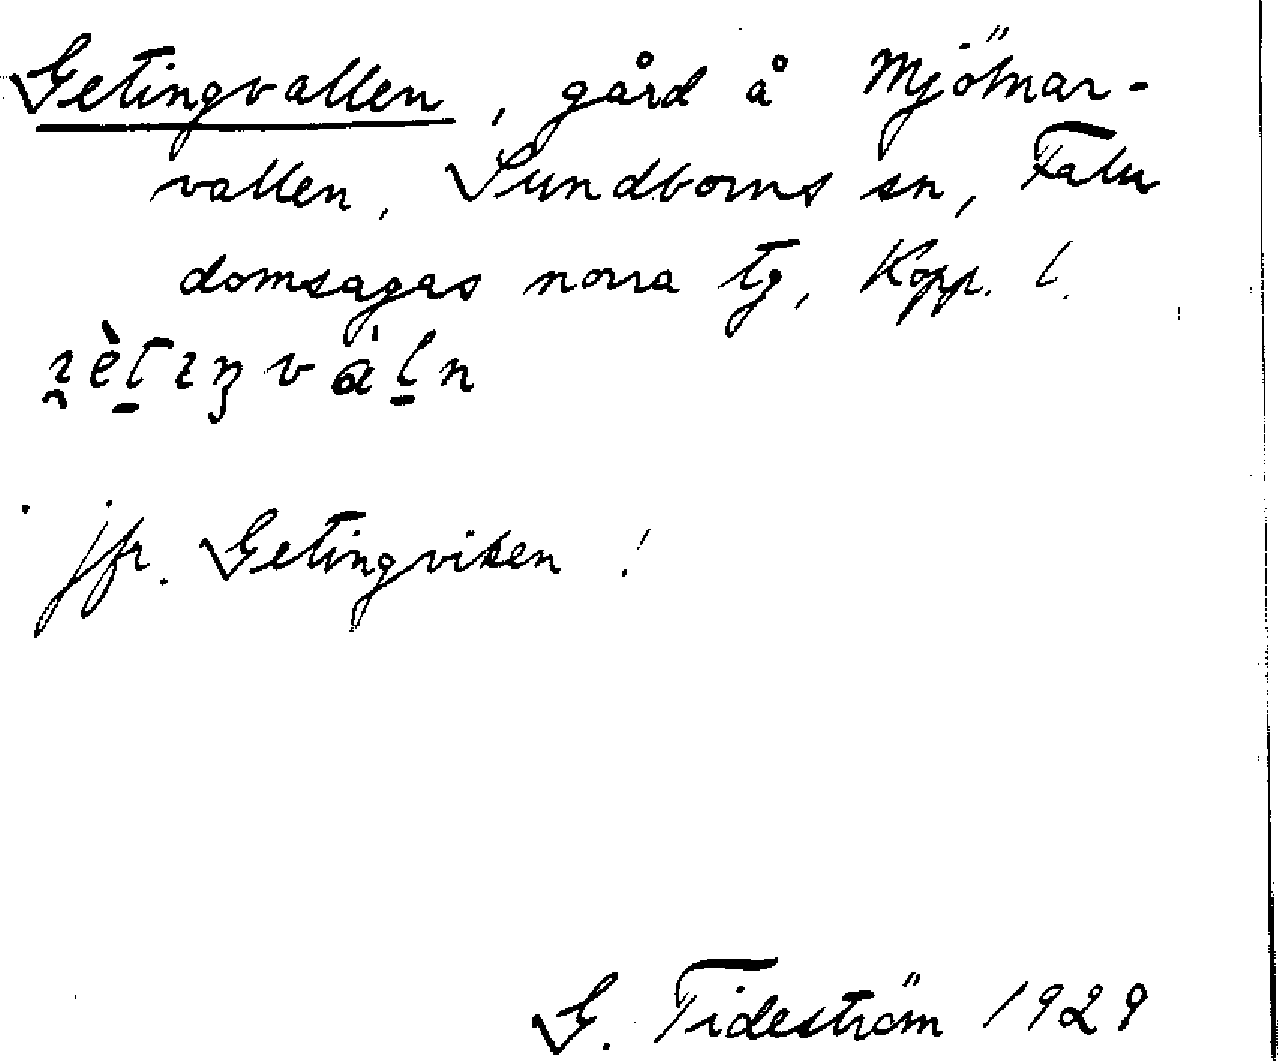 Getingvallen, gård å Mjölnar-
vallen, Sundborns sn, Falu
domsagas norra tg, Kopp. l.
jfr. Getingviken!
G. Tideström 1929